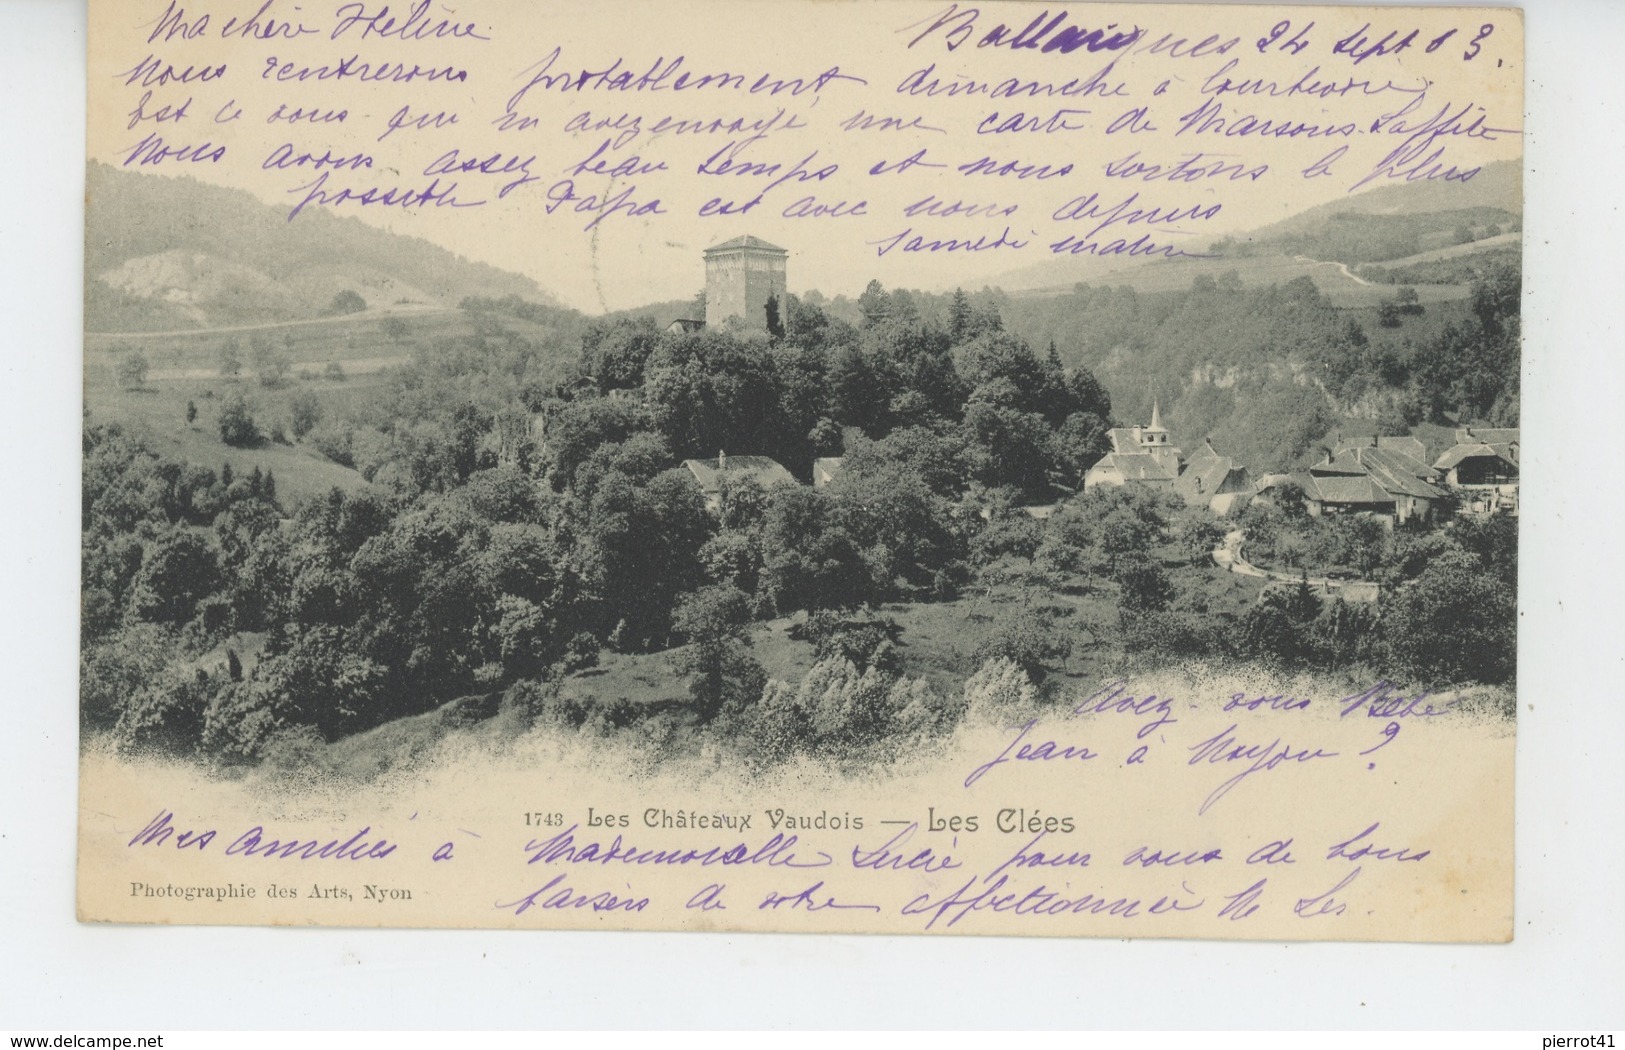 Ma chère Hélène
Ballaigues 24 Sept 03.
Nous rentrerons probablement dimanche à
Est ce vous qui m avez envoyé une carte de Maisons-Laffite
Nous avons assez beau temps et nous sortons le plus
possible Papa est avec nous depuis
samedi matin
Avez-vous Bébé
Jean à Noyon ?
1743 Les Châteaux Vaudois — Les Clées
Mes amitiés à Mademoiselle Lucie pour vous de bons
baisers de votre affectionnée
Photographie des Arts, Nyon
delcampe.net
pierrot41